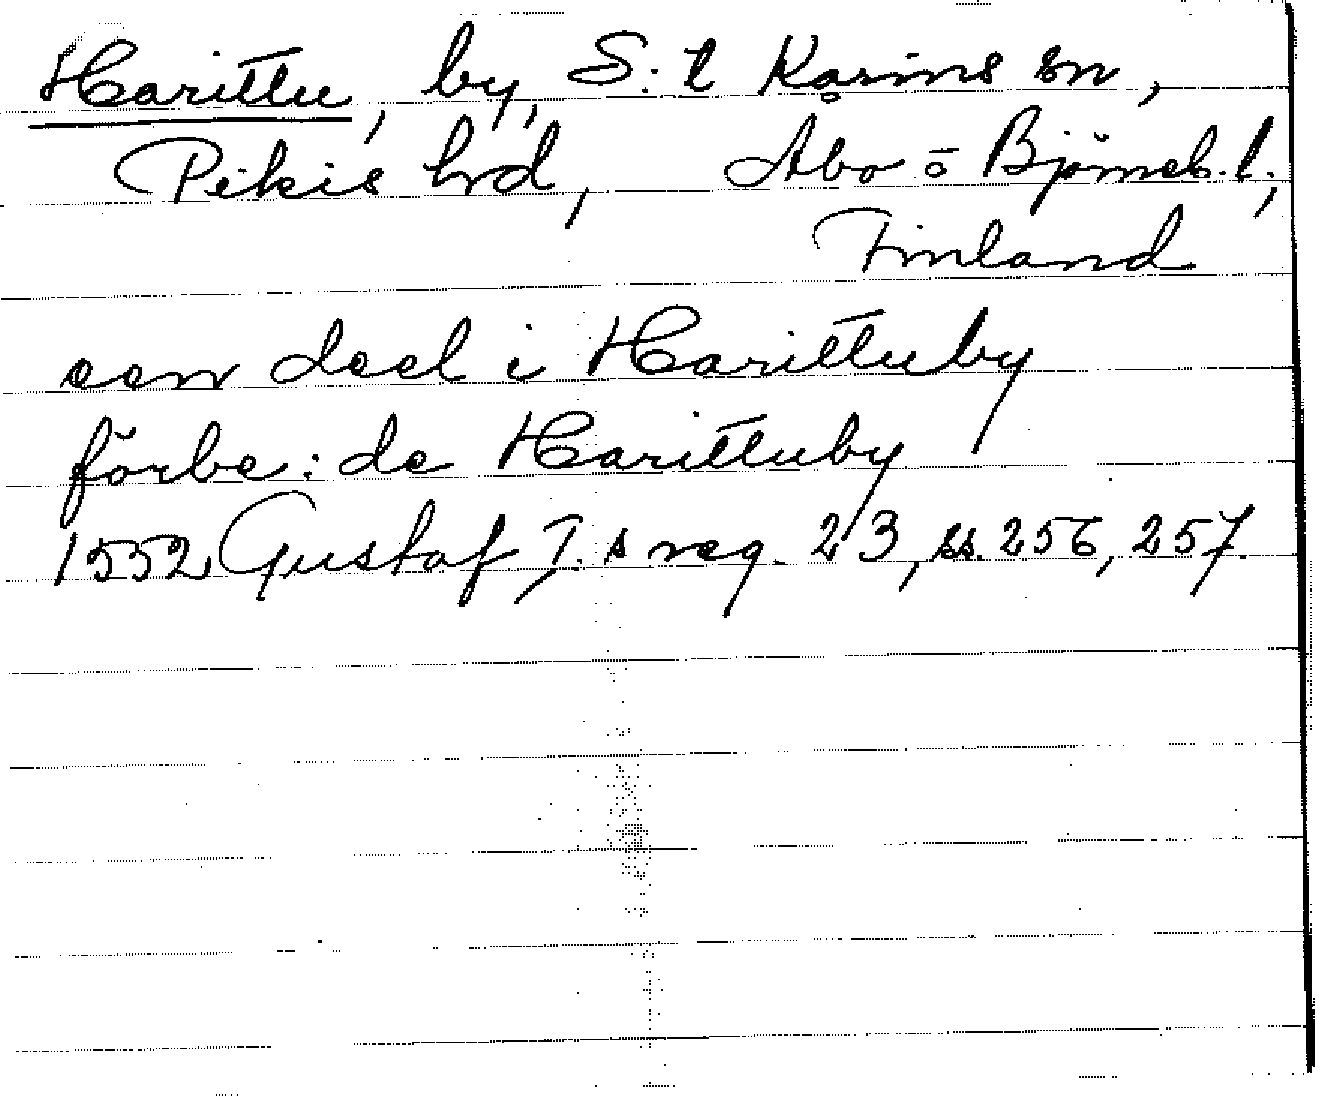 Harittu, by, S:t Karins sn,
Pikis hrd, Åbo o Björneb. l.,
Finland
een deel i Harittuby
förbe: de Harittuby
1552 Gustaf I.s reg. 23, ss. 256, 257.